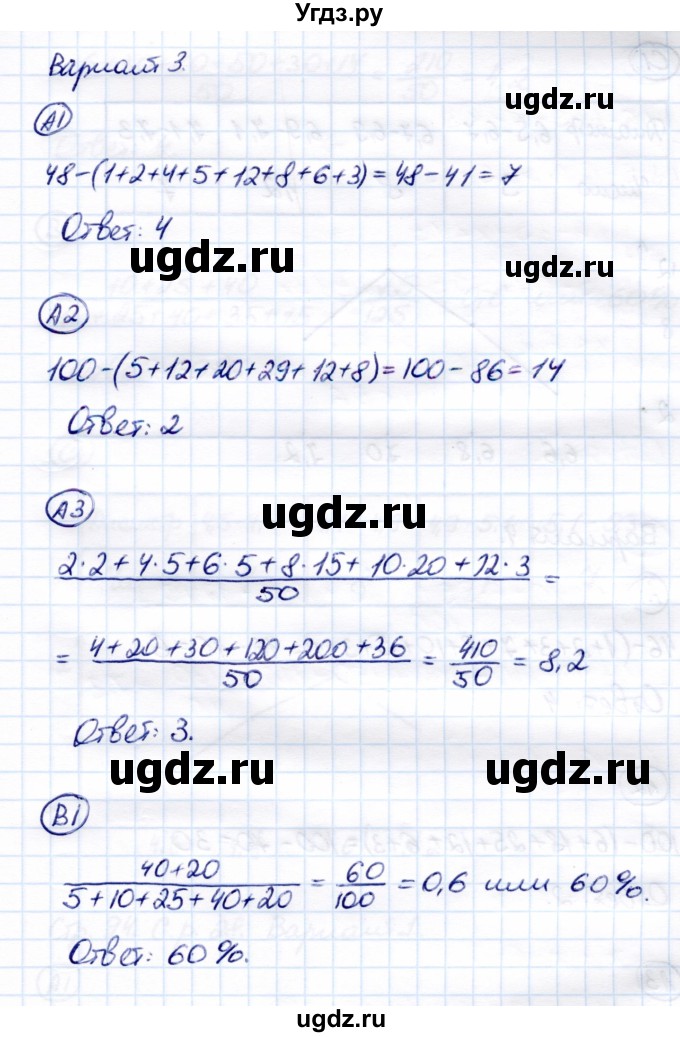 Угдз.ру
Вариант 3.
ugdz.ru
А1
48-(1+2+4+5+12+8+6+3)=48-41=7
Ответ: 4
ugdz.ru
ugdz.ru
А2
100-(5+12+20+29+12+8)=100-86=14
Ответ: 2
А3
ugdz.ru
2·2+4·5+6·5+8·15+10·20+12·3 =
50
= 4+20+30+120+200+36 = 410 = 8,2
50 50
Ответ: 3.
ugdz.ru
ugdz.ru
В1
40+20 = 60 = 0,6 или 60%.
5+10+25+40+20 100
Ответ: 60%.
ugdz.ru
ugdz.ru